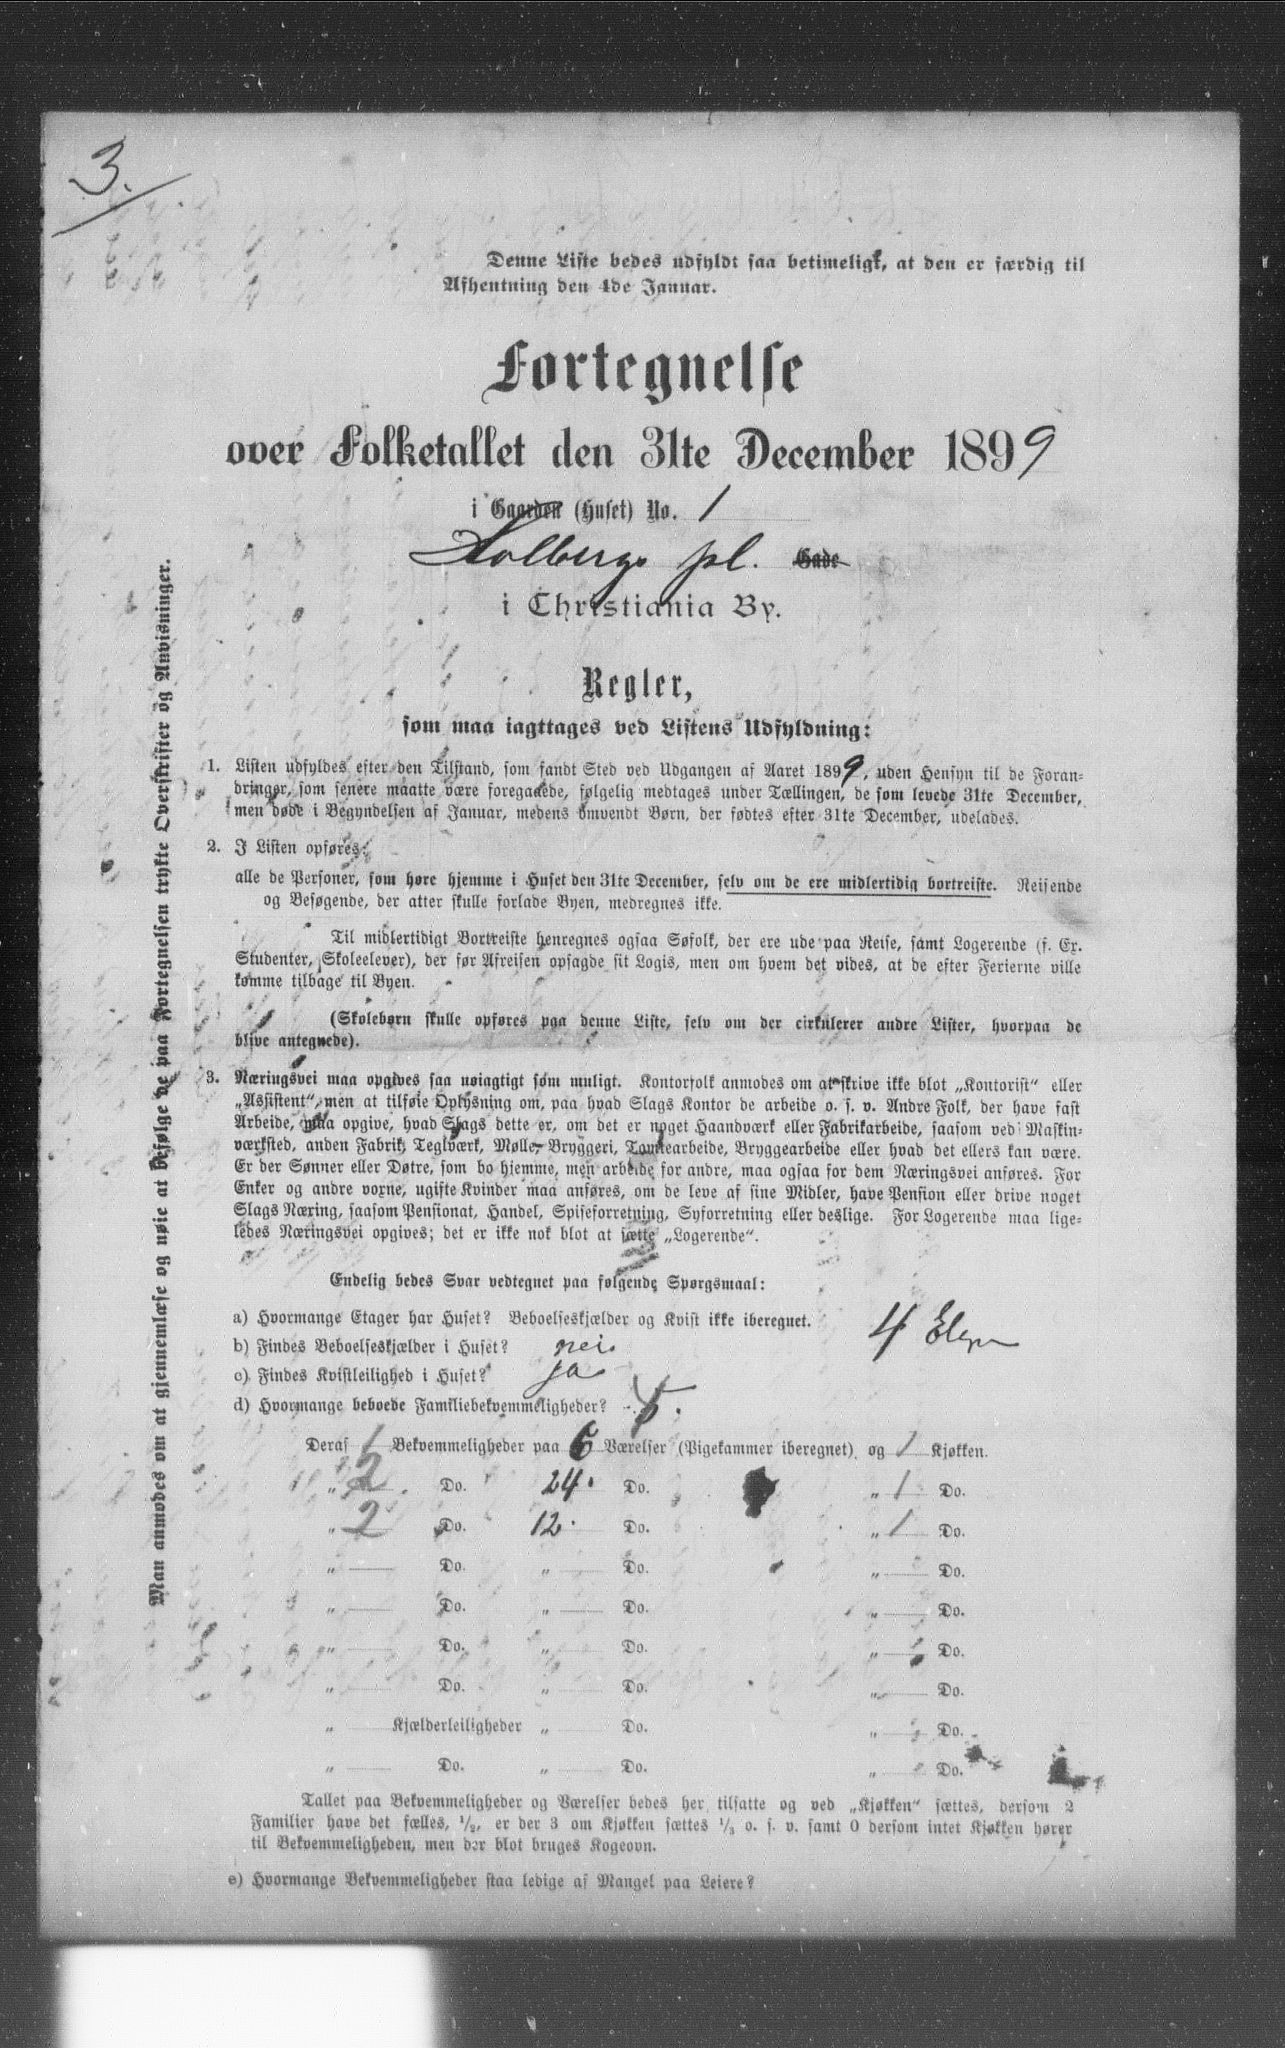 3.
Denne Liste bedes udfyldt saa betimeligt, at den er færdig til
Afhentning den 4de Januar.
Fortegnelse
over Folketallet den 31te December 1899
i Gaarden (Huset) No. 1
Holbergs pl. Gade
i Christiania By.
Regler,
som maa iagttages ved Listens Udfyldning:
1. Listen udfyldes efter den Tilstand, som fandt Sted ved Udgangen af Aaret 1899, uden Hensyn til de Foran-
dringer, som senere maatte være foregaaede, følgelig medtages under Tællingen, de som levede 31te December,
men døde i Begyndelsen af Januar, medens omvendt Børn, der fødtes efter 31te December, udelades.
2. I Listen opføres:
alle de Personer, som høre hjemme i Huset den 31te December, selv om de ere midlertidig bortreiste. Reisende
og Besøgende, der atter skulle forlade Byen, medregnes ikke.
Til midlertidigt Bortreiste henregnes ogsaa Søfolk, der ere ude paa Reise, samt Logerende (f. Ex.
Studenter, Skoleelever), der før Afreisen opsagde sit Logis, men om hvem det vides, at de efter Ferierne ville
komme tilbage til Byen.
(Skolebørn skulle opføres paa denne Liste, selv om der cirkulerer andre Lister, hvorpaa de
blive antegnede).
3. Næringsvei maa opgives saa nøiagtigt som muligt. Kontorfolk anmodes om at skrive ikke blot „Kontorist“ eller
„Assistent“, men at tilføie Oplysning om, paa hvad Slags Kontor de arbeide o. s. v. Andre Folk, der have fast
Arbeide, maa opgive, hvad Slags dette er, om det er noget Haandværk eller Fabrikarbeide, saasom ved Maskin-
værksted, anden Fabrik, Teglværk, Mølle, Bryggeri, Tomtearbeide, Bryggearbeide eller hvad det ellers kan være.
Er der Sønner eller Døtre, som bo hjemme, men arbeide for andre, maa ogsaa for dem Næringsvei anføres. For
Enker og andre vorne, ugifte Kvinder maa anføres, om de leve af sine Midler, have Pension eller drive noget
Slags Næring, saasom Pensionat, Handel, Spiseforretning, Syforretning eller deslige. For Logerende maa lige-
ledes Næringsvei opgives; det er ikke nok blot at sætte „Logerende“.
Endelig bedes Svar vedtegnet paa følgende Spørgsmaal:
a) Hvormange Etager har Huset? Beboelseskjælder og Kvist ikke iberegnet. 4
b) Findes Beboelseskjælder i Huset? nei
c) Findes Kvistleilighed i Huset? ja
d) Hvormange beboede Familiebekvemmeligheder? 5.
Deraf 1 Bekvemmeligheder paa 6 Værelser (Pigekammer iberegnet) og 1 Kjøkken.
„ 2 Do. 24. Do. „ 1 Do.
„ 2 Do. 12. Do. „ 1 Do.
„ Do. „ Do. „ Do.
„ Do. „ Do. „ Do.
„ Do. „ Do. „ Do.
„ Do. „ Do. „ Do.
„ Kjælderleiligheder „ Do. „ Do.
„ Do. „ Do. „ Do.
Tallet paa Bekvemmeligheder og Værelser bedes her tilsatte og ved „Kjøkken“ sættes, dersom 2
Familier have det fælles, 1/2, er der 3 om Kjøkken sættes 1/3 o. s. v. samt 0 dersom intet Kjøkken hører
til Bekvemmeligheden, men der blot bruges Kogeovn.
e) Hvormange Bekvemmeligheder staa ledige af Mangel paa Leiere?
Man anmodes om at gjennemlæse og nøie at befølge de paa Fortegnelsen trykte Overskrifter og Anvisninger.